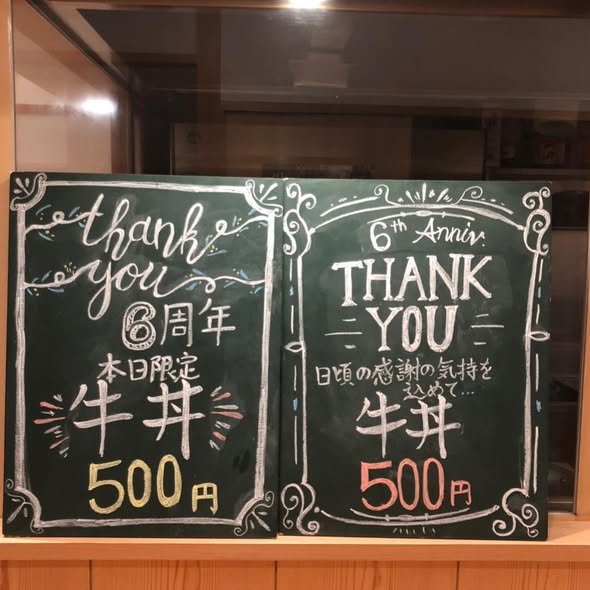 thank
you
6周年
本日限定
牛丼
500円
6th Anniv.
THANK
YOU
日頃の感謝の気持を
込めて...
牛丼
500円